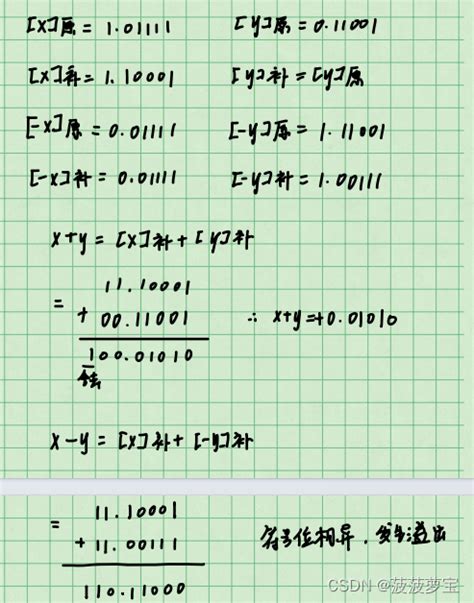 [x]原 = 1.01111 [y]原 = 0.11001
[x]补 = 1.10001 [y]补 = [y]原
[-x]原 = 0.01111 [-y]原 = 1.11001
[-x]补 = 0.01111 [-y]补 = 1.00111
x+y = [x]补 + [y]补
11.10001
= + 00.11001 ∴ x+y = +0.01010
100.01010
舍去
x-y = [x]补 + [-y]补
= 11.10001
+ 11.00111 符号位相异，发生溢出
110.11000
CSDN @菠菠萝宝